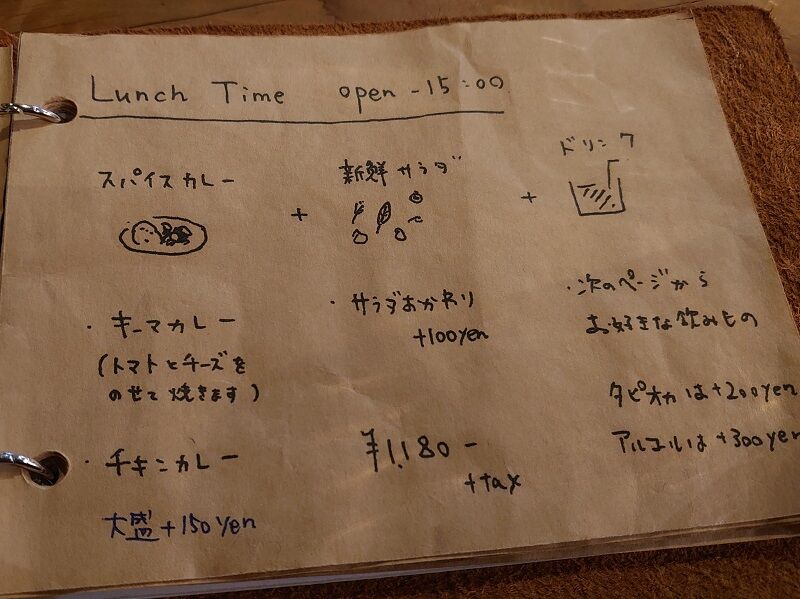 Lunch Time open - 15:00
スパイスカレー + 新鮮サラダ + ドリンク
・キーマカレー
(トマトとチーズを
のせて焼きます)
・チキンカレー
大盛+150yen
・サラダおかわり
+100yen
¥1,180-
+tax
・次のページから
お好きな飲みもの
タピオカは+200yen
アルコールは+300yen